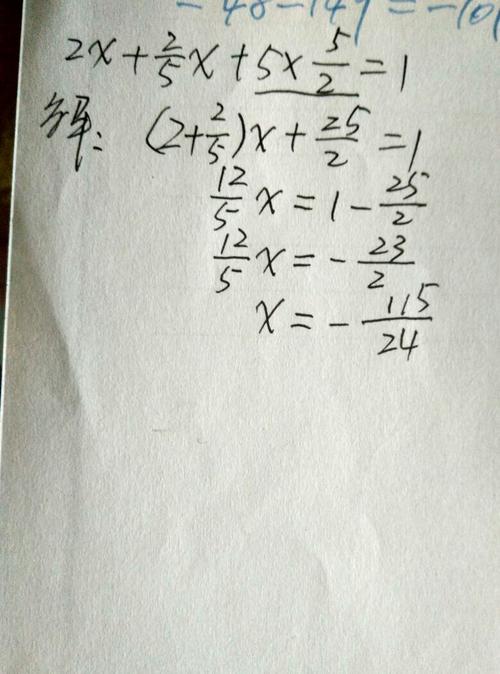 -48-149=-101
2x+2/5x+5×5/2=1
解:(2+2/5)x+25/2=1
12/5x=1-25/2
12/5x=-23/2
x=-115/24